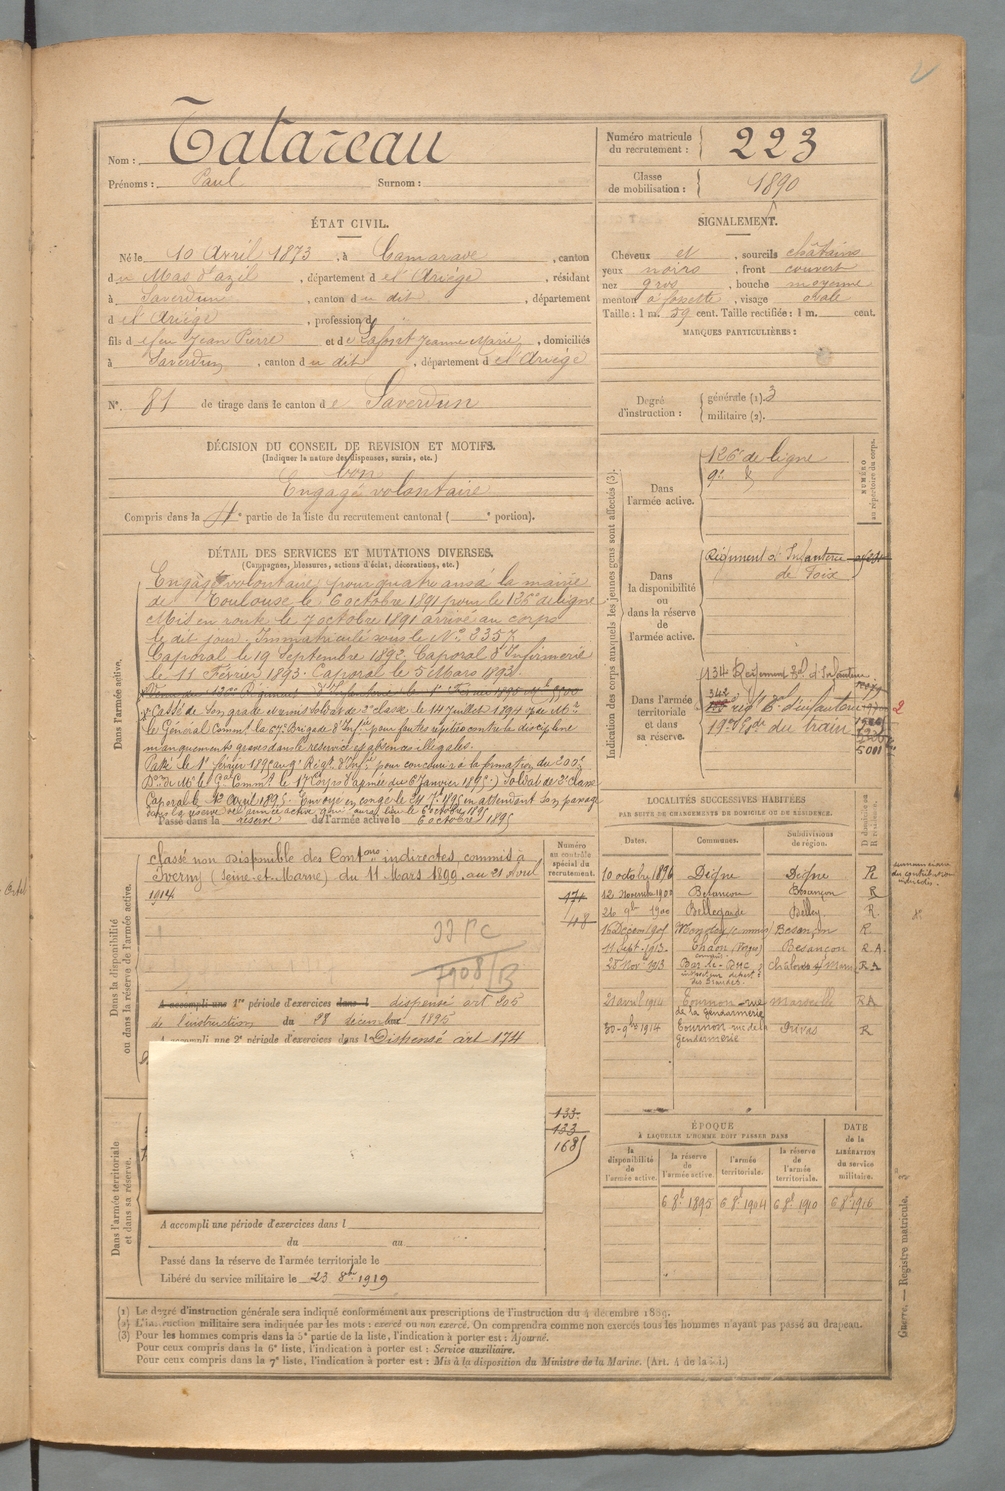 Nom : Tatareau
Prénoms : Paul Surnom :
Numéro matricule du recrutement : 223
Classe de mobilisation : 1890
ÉTAT CIVIL.
Né le 10 Avril 1873, à Camarade, canton
du Mas d'azil, département de l'Ariége, résidant
à Saverdun, canton du dit, département
de l'Ariége, profession d
fils de feu Jean Pierre et de Lafont Jeanne Marie, domiciliés
à Saverdun, canton du dit, département de l'Ariége
N° 81 de tirage dans le canton de Saverdun
SIGNALEMENT.
Cheveux et, sourcils châtains
yeux noirs, front couvert
nez gros, bouche moyenne
menton à fossette, visage ovale
Taille : 1 m. 59 cent. Taille rectifiée : 1 m. cent.
MARQUES PARTICULIÈRES :
Degré d'instruction : générale (1). 3
militaire (2).
DÉCISION DU CONSEIL DE REVISION ET MOTIFS.
(Indiquer la nature des dispenses, sursis, etc.)
bon
Engagé volontaire
Compris dans la 4e partie de la liste du recrutement cantonal ( e portion).
DÉTAIL DES SERVICES ET MUTATIONS DIVERSES.
(Campagnes, blessures, actions d'éclat, décorations, etc.)
Dans l'armée active.
Engagé volontaire pour quatre ans à la mairie
de Toulouse le 6 octobre 1891 pour le 126e de ligne
Mis en route le 7 octobre 1891 arrivé au corps
le dit jour. Immatriculé sous le N° 2357
Caporal le 19 Septembre 1892. Caporal d'Infirmerie
le 11 Février 1893. Caporal le 5 Mars 1893.
Cassé de son grade et remis soldat de 2e classe le 14 Juillet 1894
le Général Commt la Brigade d'Infie pour fautes répétées contre la discipline
manquements graves dans le service et absences illégales.
Passé le 1er février 1895 au 9e Régt d'Infie pour concourir à la formation du 200e
6 Janvier 1895) Soldat de 2e classe
Caporal le 12 Avril 1895. Envoyé en congé le 1895 en attendant son passage
dans la réserve de l'armée active qui aura lieu le 6 octobre 1895
Passé dans la réserve de l'armée active le 6 octobre 1895
Indication des corps auxquels les jeunes gens sont affectés (3).
NUMÉRO au répertoire du corps.
Dans l'armée active.
126e de ligne
9e d°
Dans la disponibilité ou dans la réserve de l'armée active.
Régiment d'Infanterie
de Foix
Dans l'armée territoriale et dans sa réserve.
134 Régiment Tal d'Infanterie
19e Esc. du train
5001
2
Dans la disponibilité ou dans la réserve de l'armée active.
Numéro au contrôle spécial du recrutement.
classé non Disponible des Contons indirectes, commis à
Iverny (Seine-et-Marne) du 11 Mars 1899 au 21 Avril
1914
A accompli une 1re période d'exercices dans l dispensé art 205
de l'instruction du 28 décembre 1895
A accompli une 2e période d'exercices dans l Dispensé art 174
Dans l'armée territoriale et dans sa réserve.
133
133
1685
A accompli une période d'exercices dans l
du au
Passé dans la réserve de l'armée territoriale le
Libéré du service militaire le 23 8bre 1919
LOCALITÉS SUCCESSIVES HABITÉES
PAR SUITE DE CHANGEMENTS DE DOMICILE OU DE RÉSIDENCE.
Dates. Communes. Subdivisions de région. D domicile ou R résidence.
10 octobre 1896 Digne Digne R
12 Novembre 1900 Besançon Besançon R
26 9bre 1900 Bellegarde Belley R.
Besançon R.
11 Sept. 1913. Thaon (Vosges) Besançon R.A.
28 Nov. 1913 Bar-le-Duc Chalons s/ Marne R A
21 avril 1914 Tournon rue de la Gendarmerie Marseille R A
30 9bre 1914 Tournon rue de la Gendarmerie Privas R
ÉPOQUE
À LAQUELLE L'HOMME DOIT PASSER DANS
la disponibilité de l'armée active. la réserve de l'armée active. l'armée territoriale. la réserve de l'armée territoriale. DATE de la LIBÉRATION du service militaire.
6 8bre 1895 6 8bre 1904 6 8bre 1910 6 8bre 1916
Guerre. — Registre matricule.
(1) Le degré d'instruction générale sera indiqué conformément aux prescriptions de l'instruction du 4 décembre 1889.
(2) L'instruction militaire sera indiquée par les mots : exercé ou non exercé. On comprendra comme non exercés tous les hommes n'ayant pas passé au drapeau.
(3) Pour les hommes compris dans la 5e partie de la liste, l'indication à porter est : Ajourné.
Pour ceux compris dans la 6e liste, l'indication à porter est : Service auxiliaire.
Pour ceux compris dans la 7e liste, l'indication à porter est : Mis à la disposition du Ministre de la Marine. (Art. 4 de la loi.)